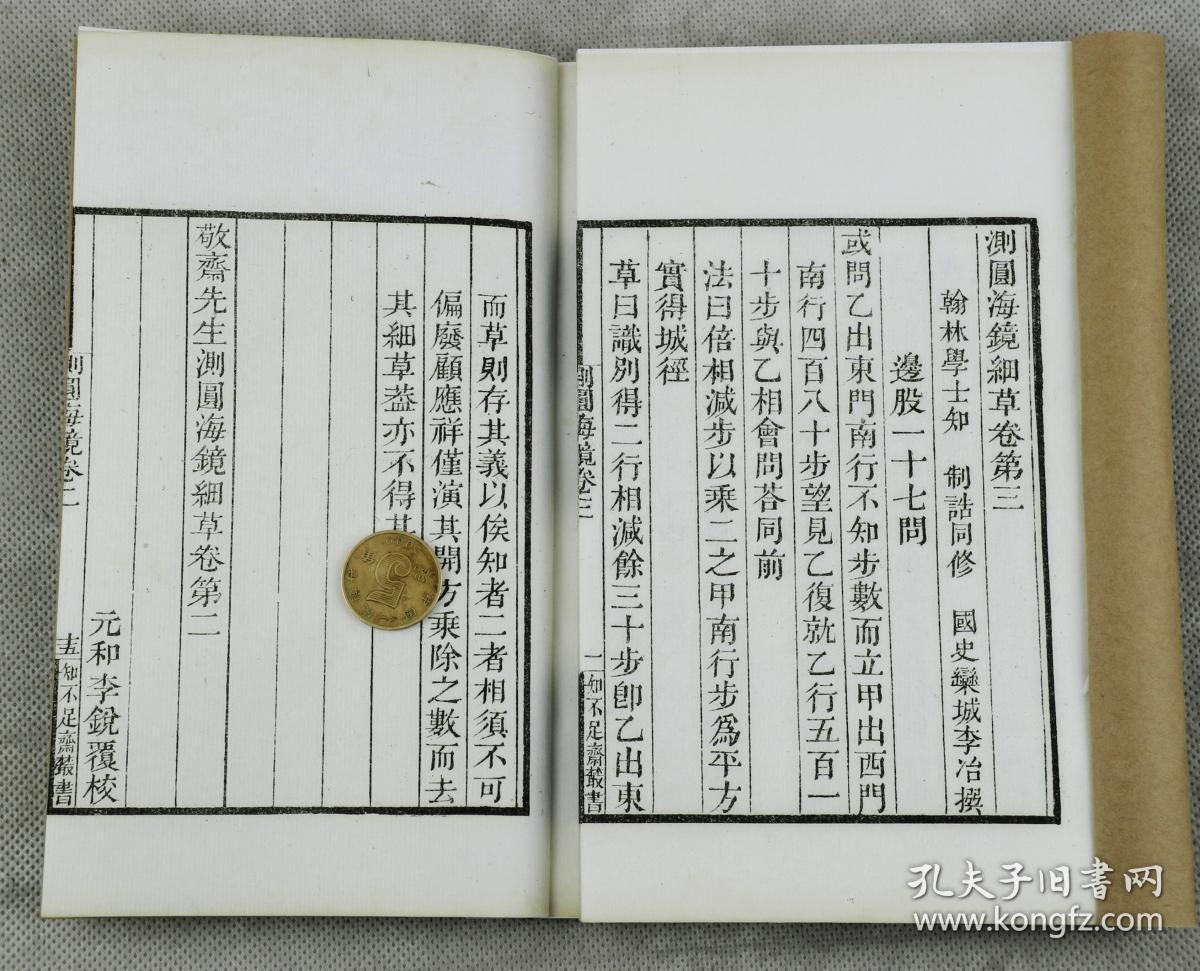 測圓海鏡細草卷第三
翰林學士知 制誥同修 國史欒城李冶撰
邊股一十七問
或問乙出東門南行不知步數而立甲出西門
南行四百八十步望見乙復就乙行五百一
十步與乙相會問荅同前
法曰倍相減步以乘二之甲南行步為平方
實得城徑
草曰識別得二行相減餘三十步即乙出東
測圓海鏡卷三
一
知不足齋叢書
而草則存其義以俟知者二者相須不可
偏廢顧應祥僅演其開方乘除之數而去
其細草葢亦不得其
敬齋先生測圓海鏡細草卷第二
元和李銳覆校
測圓海鏡卷二
知不足齋叢書
孔夫子旧書网
www.kongfz.com